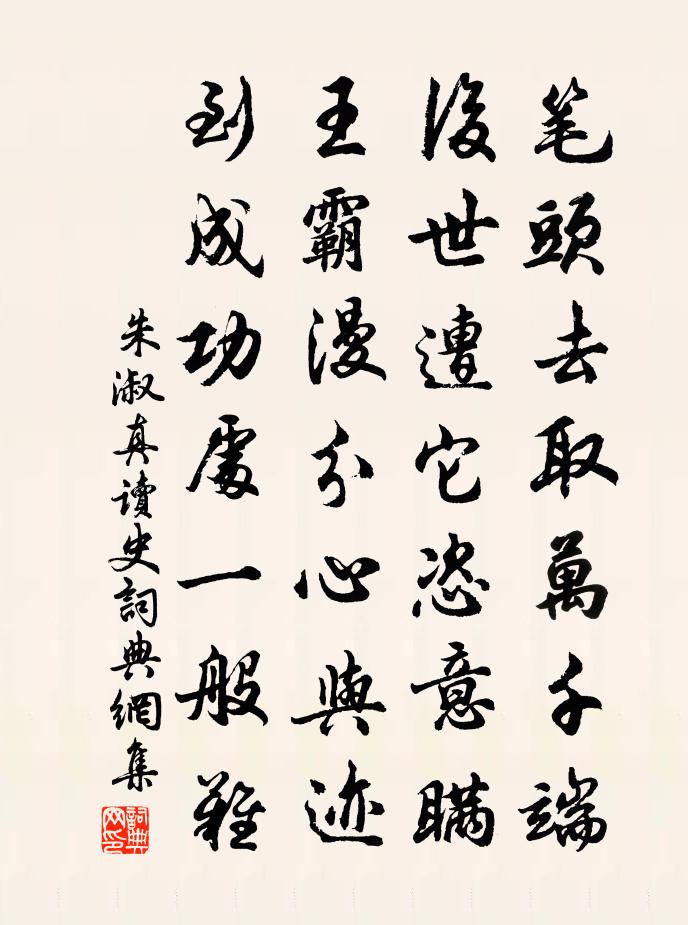 笔頭去取萬千端
後世遭它恣意瞞
王霸漫分心與迹
到成功處一般難
朱淑真讀史詞典網集
詞典网印